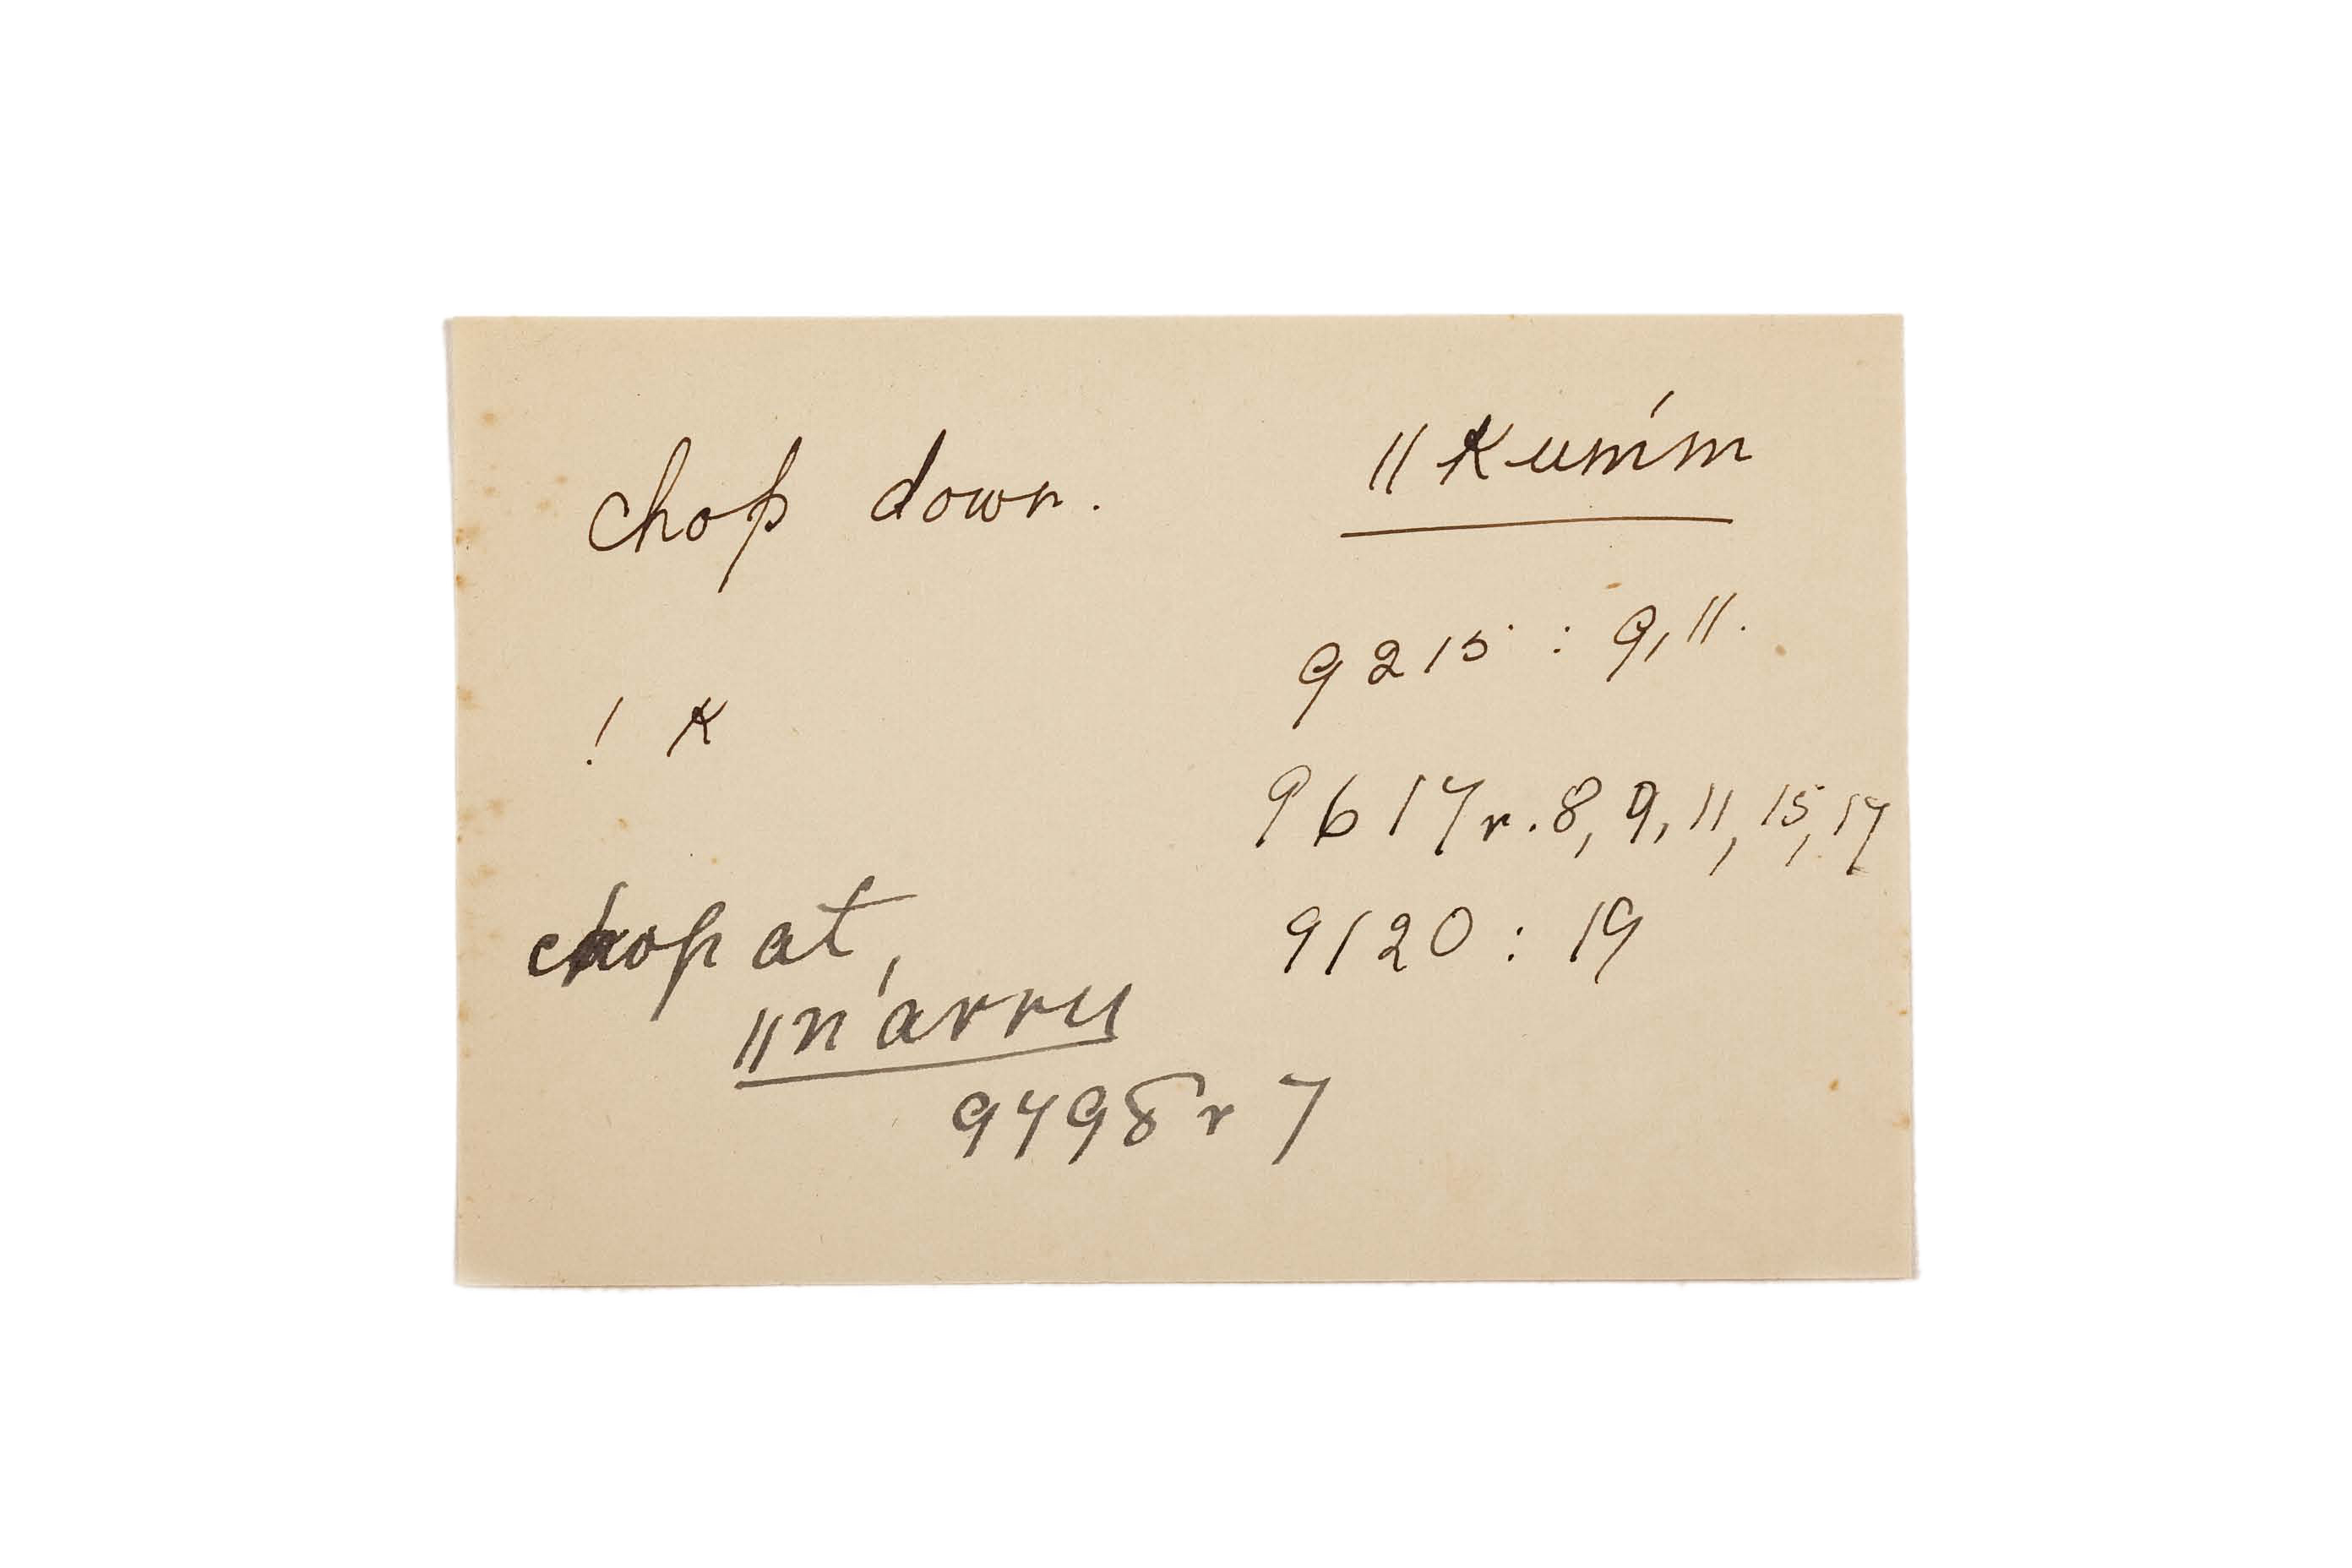 chop down. ǁkum̍m
9215 : 9, 11.
! k
9617 r. 8, 9, 11, 15, 17
chop at,
9120 : 19
ǁn̍arru
9798 r 7